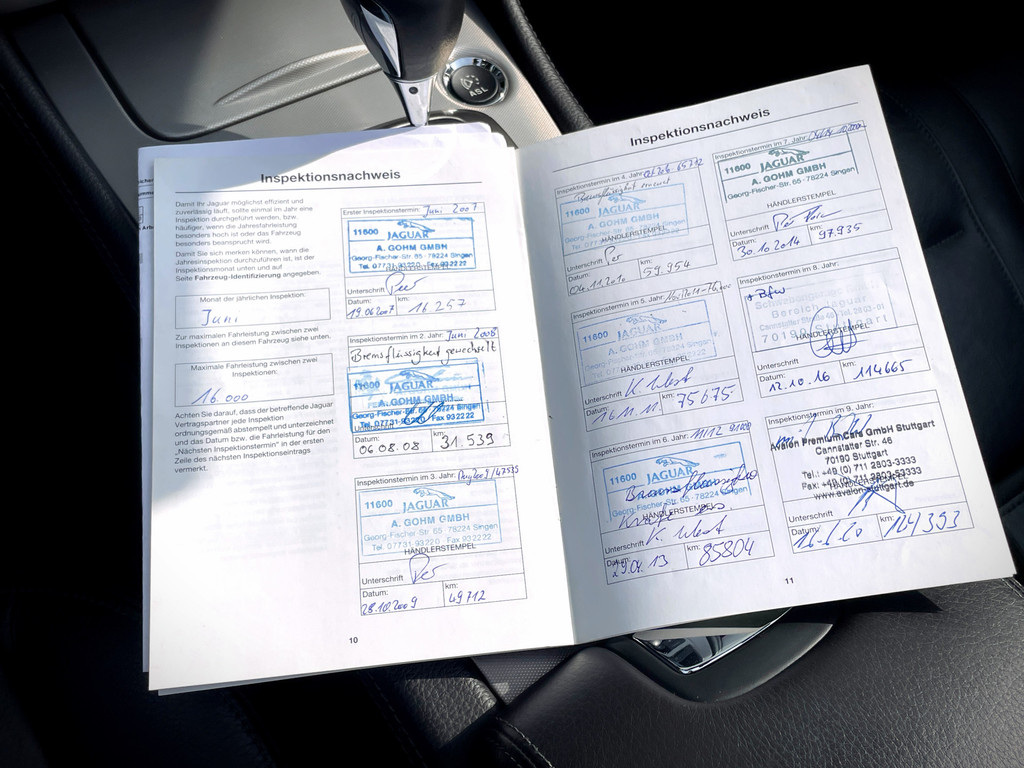 ASL
Inspektionsnachweis
Damit Ihr Jaguar möglichst effizient und
zuverlässig läuft, sollte einmal im Jahr eine
Inspektion durchgeführt werden, bzw.
häufiger, wenn die Jahresfahrleistung
besonders hoch ist oder das Fahrzeug
besonders beansprucht wird.
Damit Sie sich merken können, wann die
Jahresinspektion durchzuführen ist, ist der
Inspektionsmonat unten und auf
Seite Fahrzeug-Identifizierung angegeben.
Monat der jährlichen Inspektion:
Juni
Zur maximalen Fahrleistung zwischen zwei
Inspektionen an diesem Fahrzeug siehe unten.
Maximale Fahrleistung zwischen zwei
Inspektionen:
16 000
Achten Sie darauf, dass der betreffende Jaguar
Vertragspartner jede Inspektion
ordnungsgemäß abstempelt und unterzeichnet
und das Datum bzw. die Fahrleistung für den
"Nächsten Inspektionstermin" in der ersten
Zeile des nächsten Inspektionseintrags
vermerkt.
Erster Inspektionstermin: Juni 2007
11600 JAGUAR
A. GOHM GMBH
Georg-Fischer-Str. 65 · 78224 Singen
Tel. 07731-93220 Fax 932222
Unterschrift
Datum: km:
19.06.2007 16.257
Inspektionstermin im 2. Jahr: Juni 2008
Bremsflüssigkeit gewechselt
11600 JAGUAR
A. GOHM GMBH
Georg-Fischer-Str. 65 78224 Singen
Tel. 07731-93220 Fax 932222
Datum: km:
06.08.08 31.539
Inspektionstermin im 3. Jahr: 2009/47535
11600 JAGUAR
A. GOHM GMBH
Georg-Fischer-Str. 65 78224 Singen
Tel. 07731-93220 Fax 932222
HÄNDLERSTEMPEL
Unterschrift
Datum: km:
28.10.2009 49712
10
Inspektionsnachweis
Inspektionstermin im 4. Jahr:
Bremsflüssigkeit erneuert
11600 JAGUAR
A. GOHM GMBH
Georg-Fischer-Str. 65 · 78224 Singen
HÄNDLERSTEMPEL
Unterschrift
Datum: km:
04.11.2010 59.954
Inspektionstermin im 5. Jahr: Nov 2011 - 76.000
11600 JAGUAR
A. GOHM GMBH
Georg-Fischer-Str. 65 78224 Singen
HÄNDLERSTEMPEL
Unterschrift K. West
Datum: km:
16.11.11 75675
Inspektionstermin im 6. Jahr: 11/12 91000
11600 JAGUAR
A. GOHM GMBH
Georg-Fischer-Str. 65 · 78224 Singen
HÄNDLERSTEMPEL
Unterschrift K. West
Datum: km:
29.04.13 85804
Inspektionstermin im 7. Jahr:
11600 JAGUAR
A. GOHM GMBH
Georg-Fischer-Str. 65 · 78224 Singen
HÄNDLERSTEMPEL
Unterschrift
Datum: km:
30.10.2014 97.935
Inspektionstermin im 8. Jahr:
+ Bfw
Bereich Jaguar
Cannstatter Straße 46
70190 Stuttgart
HÄNDLERSTEMPEL
Unterschrift
Datum: km:
12.10.16 114665
Inspektionstermin im 9. Jahr:
Avalon PremiumCars GmbH Stuttgart
Cannstatter Str. 46
70190 Stuttgart
Tel.: +49 (0) 711 2803-3333
Fax: +49 (0) 711 2803-53333
www.avalon-stuttgart.de
Unterschrift
Datum: km:
124393
11